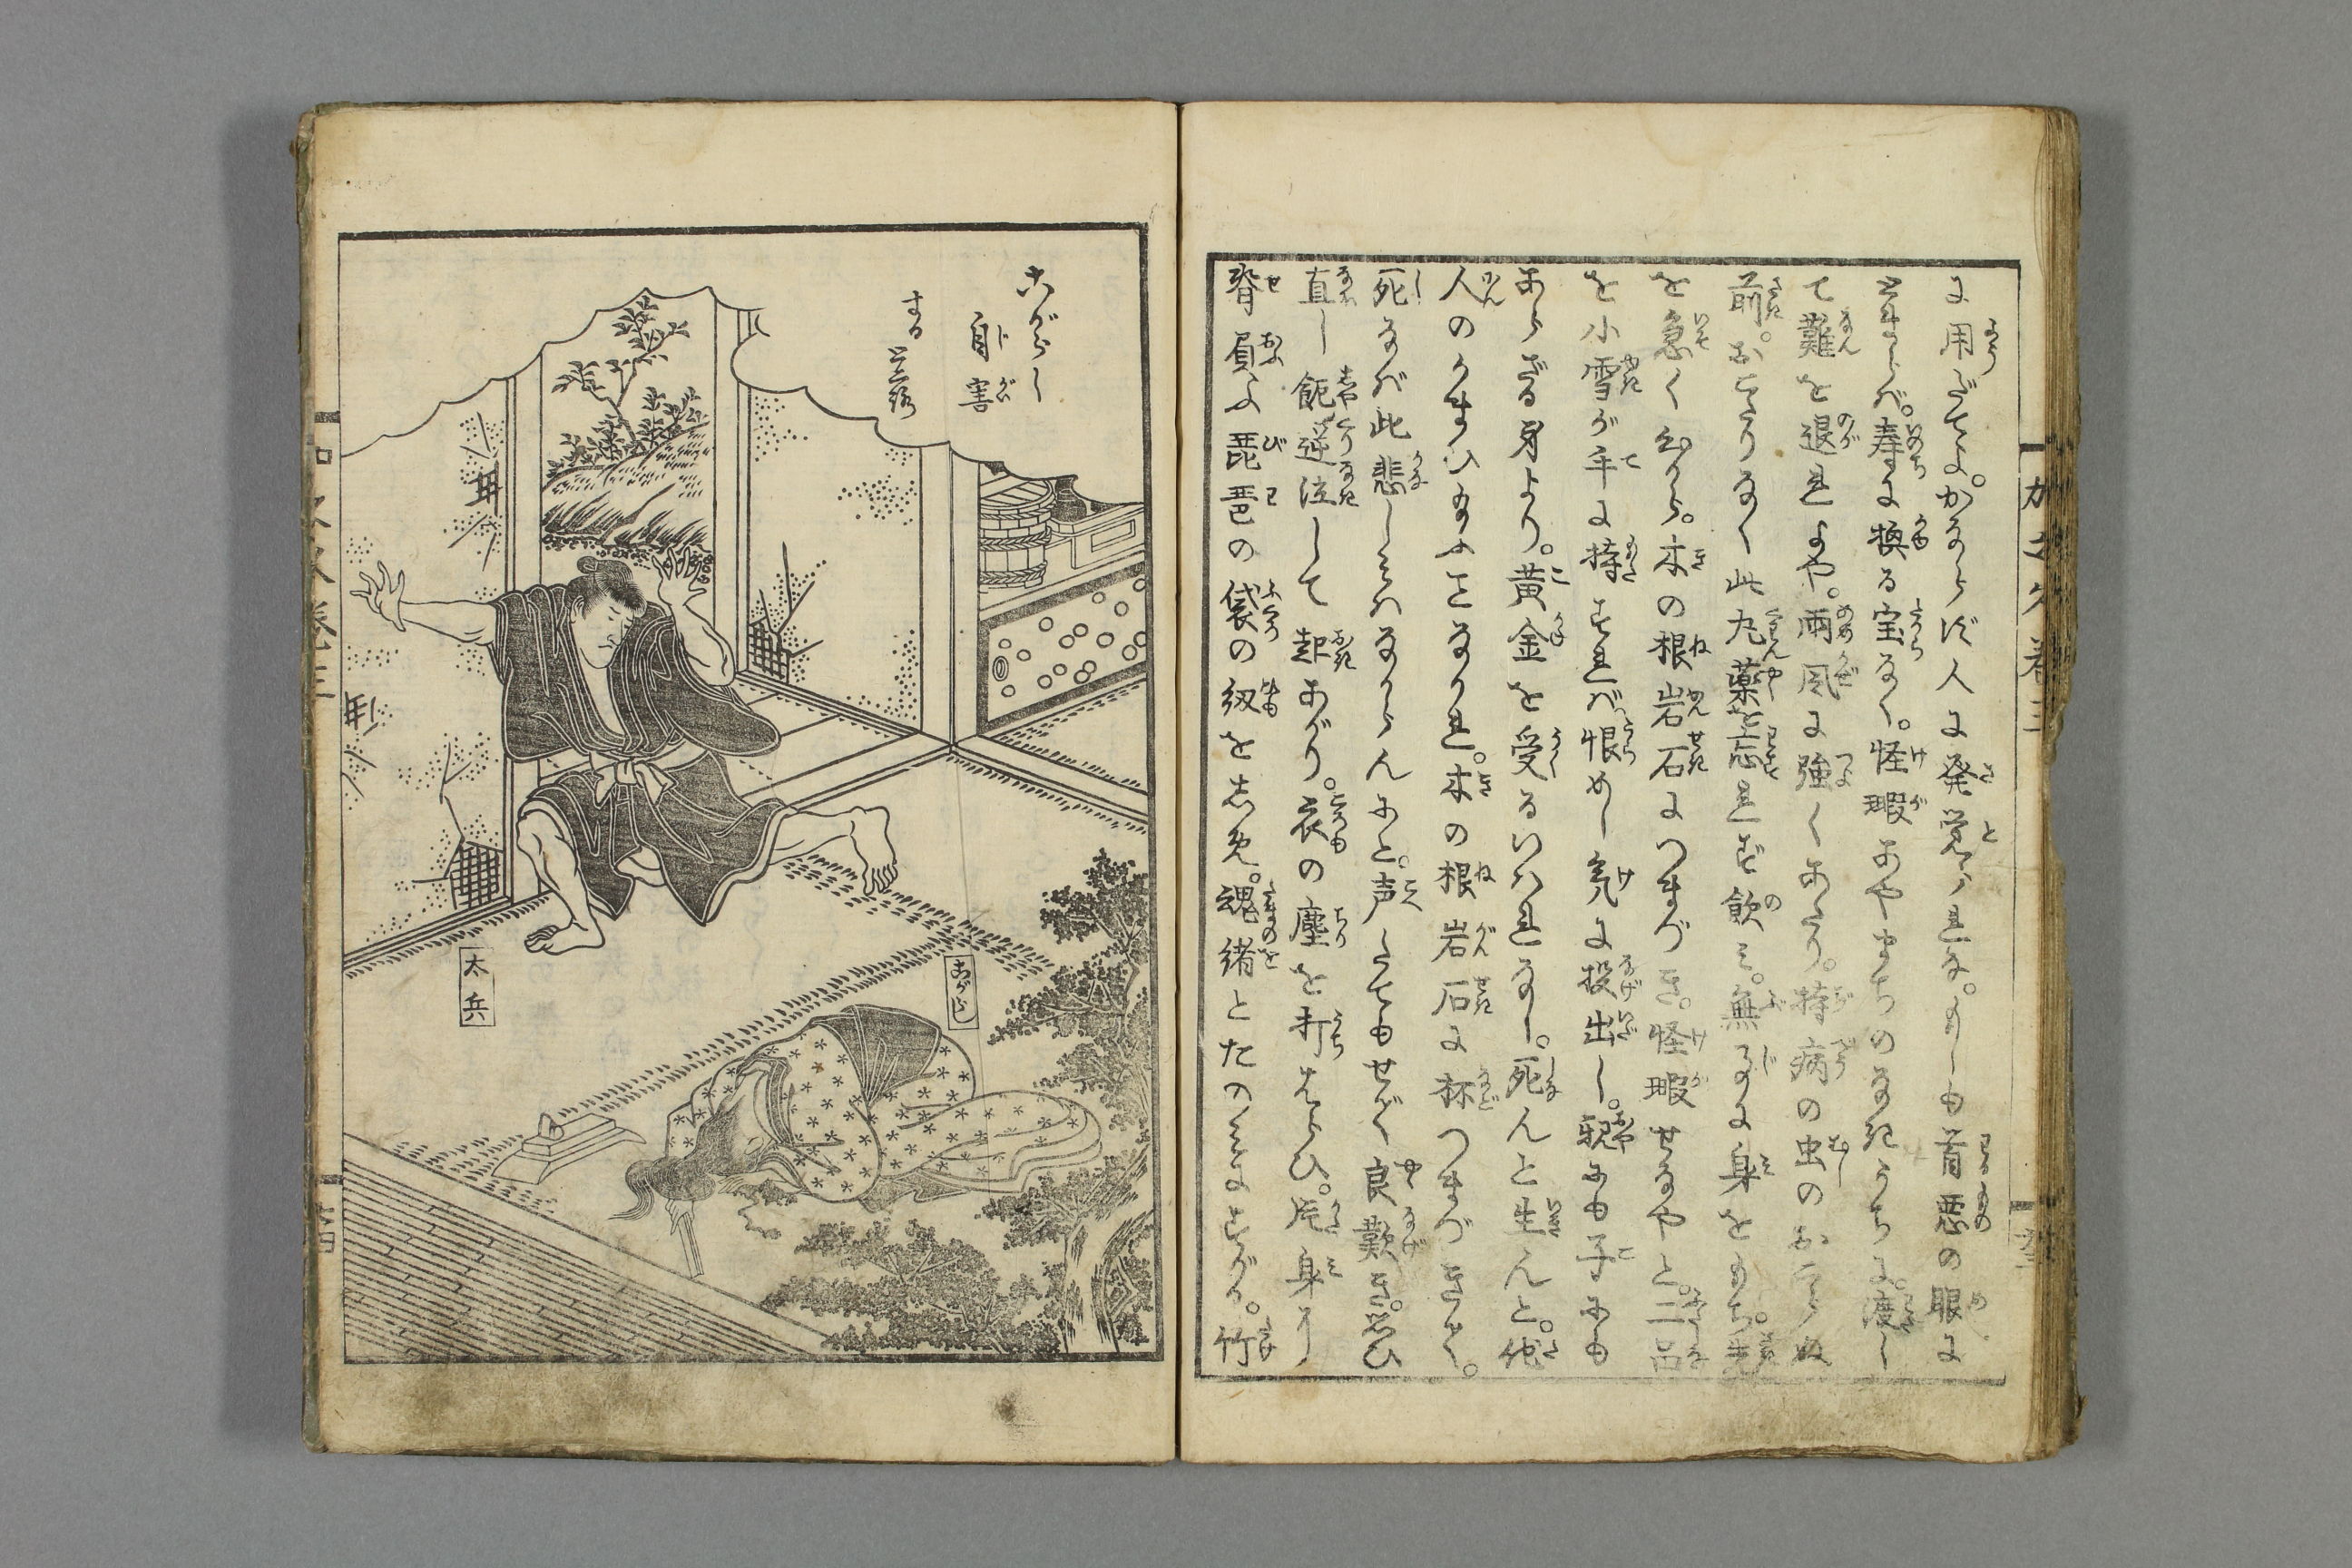 に用だてよ。かならず人に発覚られな。もしも盲悪の眼に
とまらば。寿に換る宝なく。怪瑕あやまちのなきうちに。渡し
て難を退れよや。雨風に強くあたり。持病の虫のおこらぬ
前。おこたりなく此丸薬を忘れず飲み。無事に身をもち
を急く出から。木の根岩石につまづき。怪瑕せるなやと。二品
を小雪が手に持すれば。恨めし気に投出し。親にも子にも
あらざる身より。黄金を受るいはれなし。死んと生んと。他
人のかまひ給ふことなかれ。木の根岩石に杯つまづきさく。
死なば此悲しみはなからんにと。声たてもせず哀歎き。思ひ
直し飽逆泣して起あがり。衣の塵を打はらひ。片身より
脊負ふ琵琶の袋の紐をしめ。魂緒とたのみにすがる。竹
こがらし
自害
する
ところ
太兵
こがらし
巻三